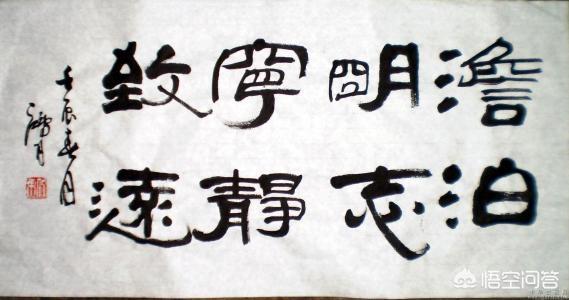 澹泊
明志
寧靜
致遠
壬辰春月
悟空问答